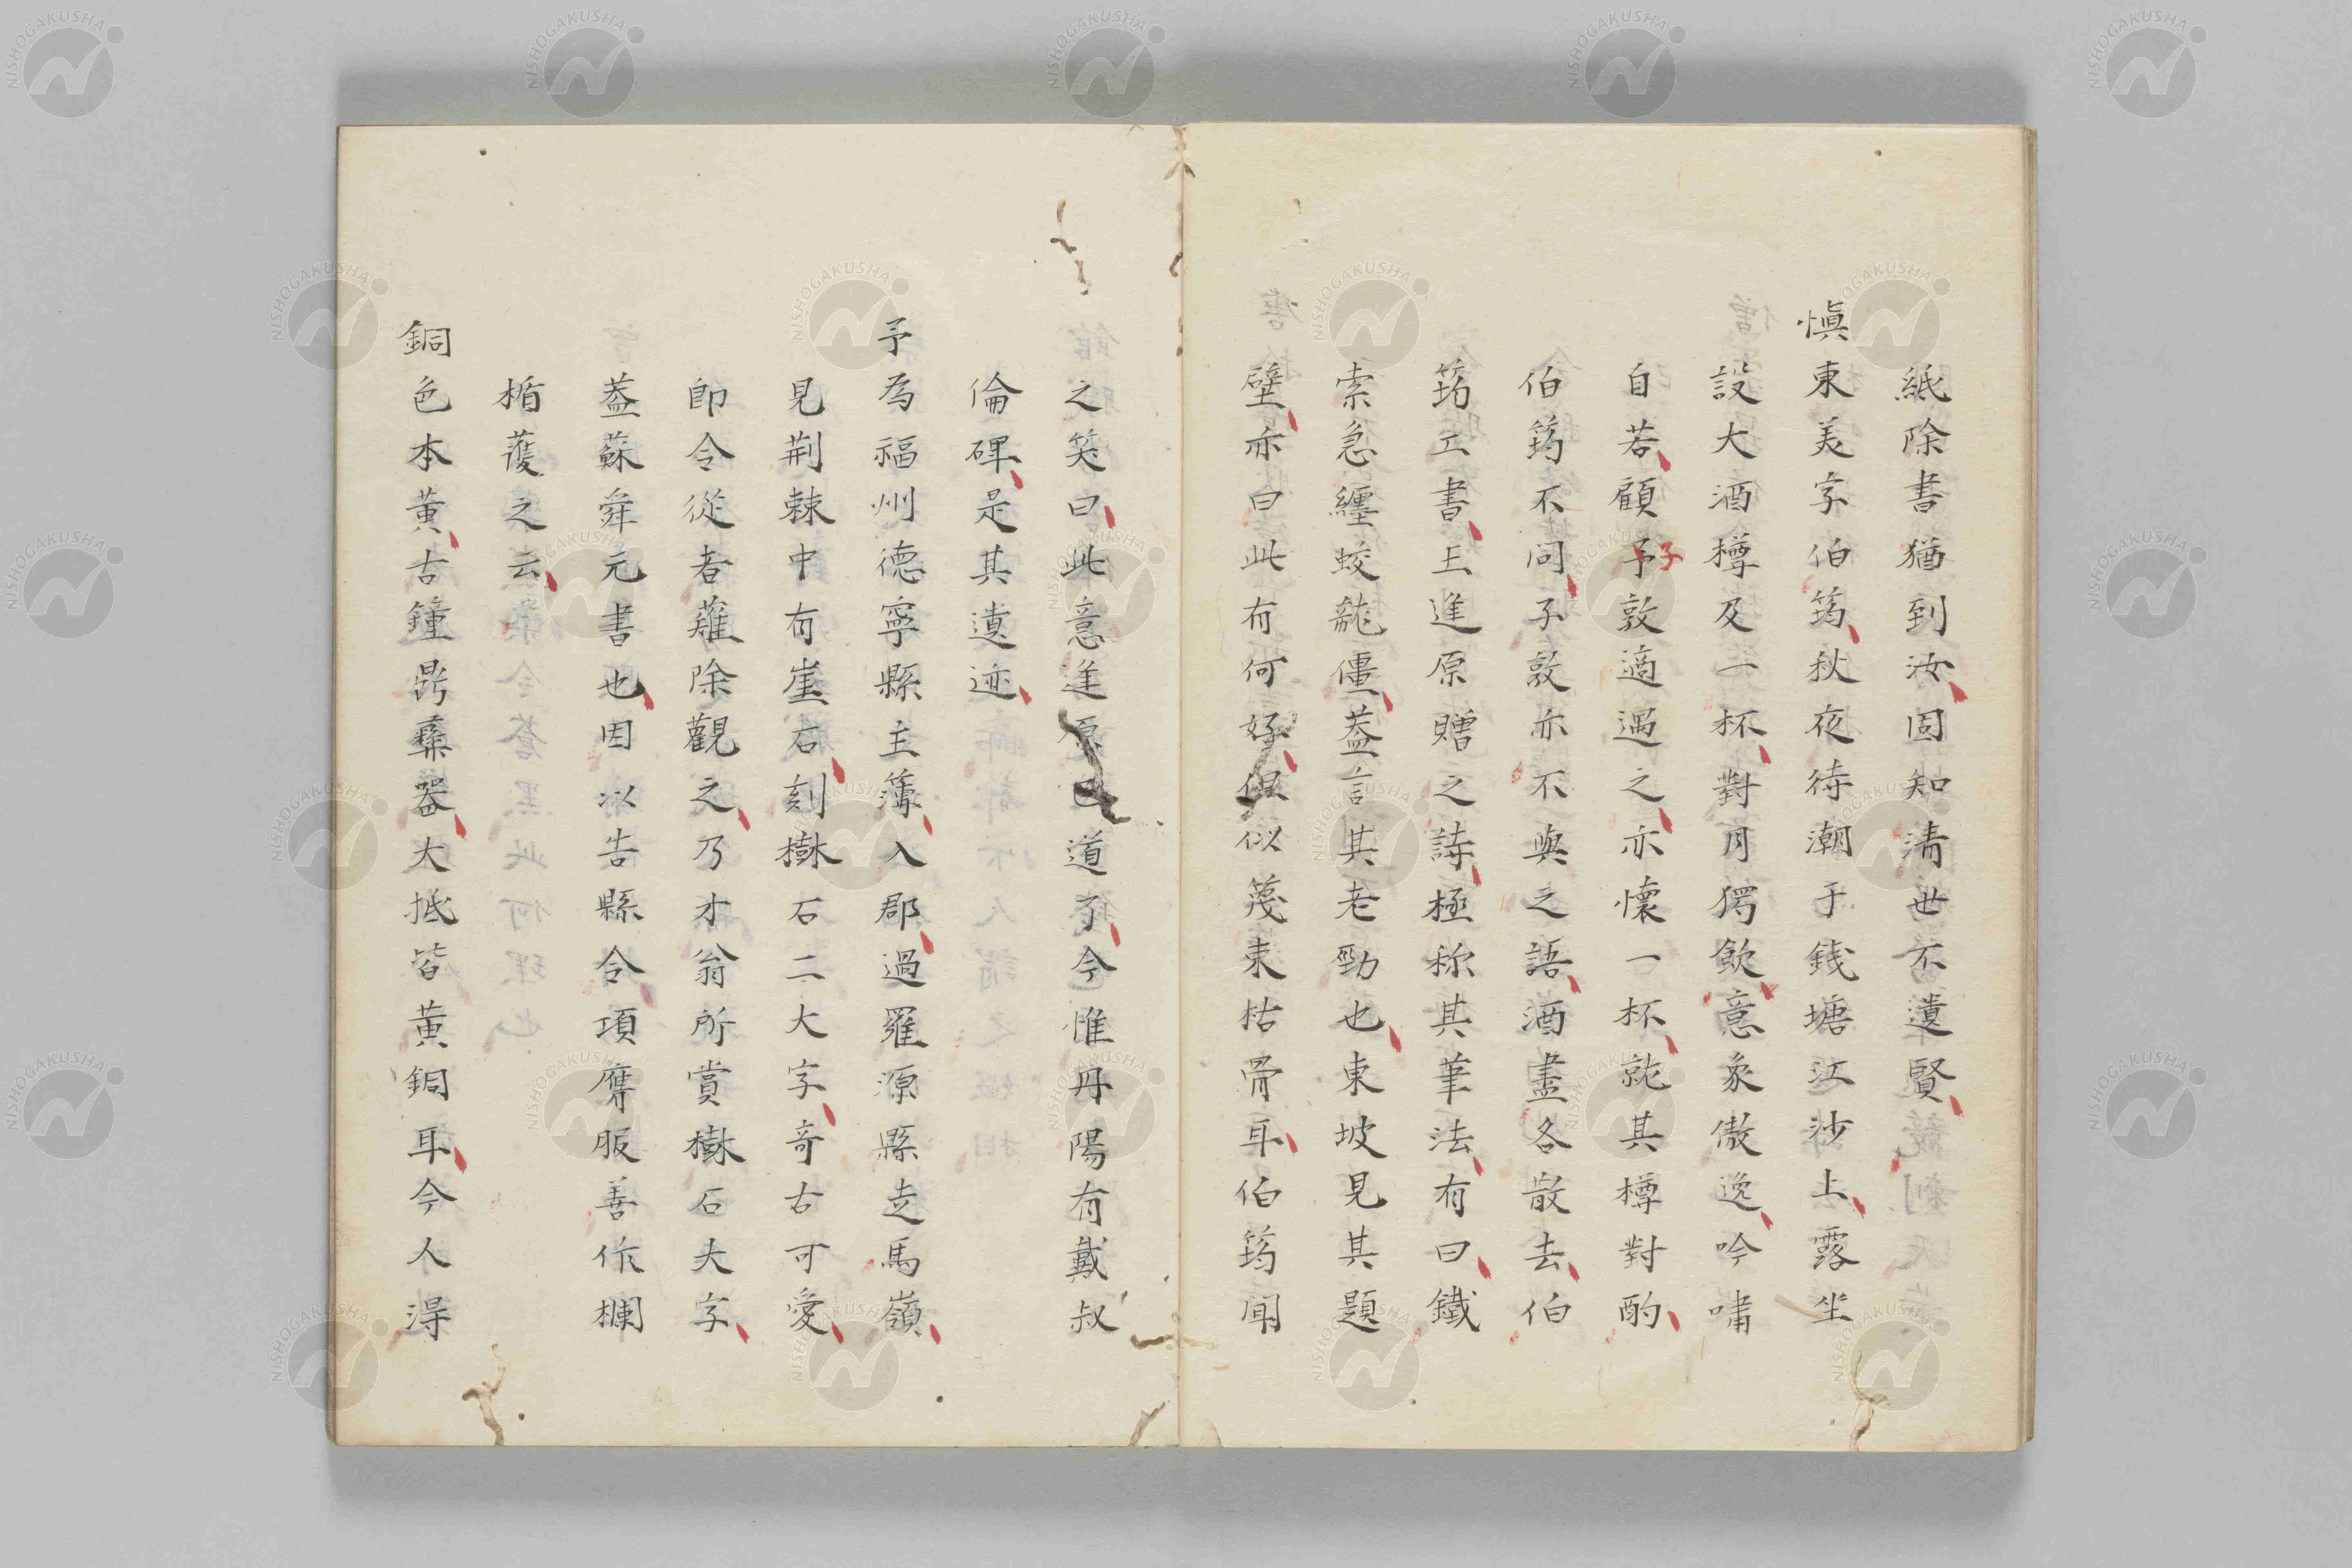 紙除書猶到汝固知清世不遺賢
慎東美字伯筠秋夜待潮于錢塘江沙上露坐
設大酒樽及一杯對月獨飲意象傲逸吟嘯
自若顧予敦適遇之亦懷一杯就其樽對酌
子
伯筠不問子敦亦不與之語酒盡各散去伯
筠工書王進原贈之詩極稱其筆法有曰鐵
索急纏蛟龍僵蓋言其老勁也東坡見其題
壁亦曰此有何好但似篾束枯骨耳伯筠聞
之笑曰此意逢原已道了今惟丹陽有戴叔
倫碑是其遺迹
予為福州德寧縣主簿入郡過羅源縣走馬嶺
見荆棘中有崖石刻樹石二大字奇古可愛
即令從者薙除觀之乃才翁所賞樹石夫字
蓋蘇舜元書也因以告縣令項膺服善作欄
楯䕶之云
銅色本黄古鐘鼎彝器大抵皆黄銅耳今人得
NISHOGAKUSHA